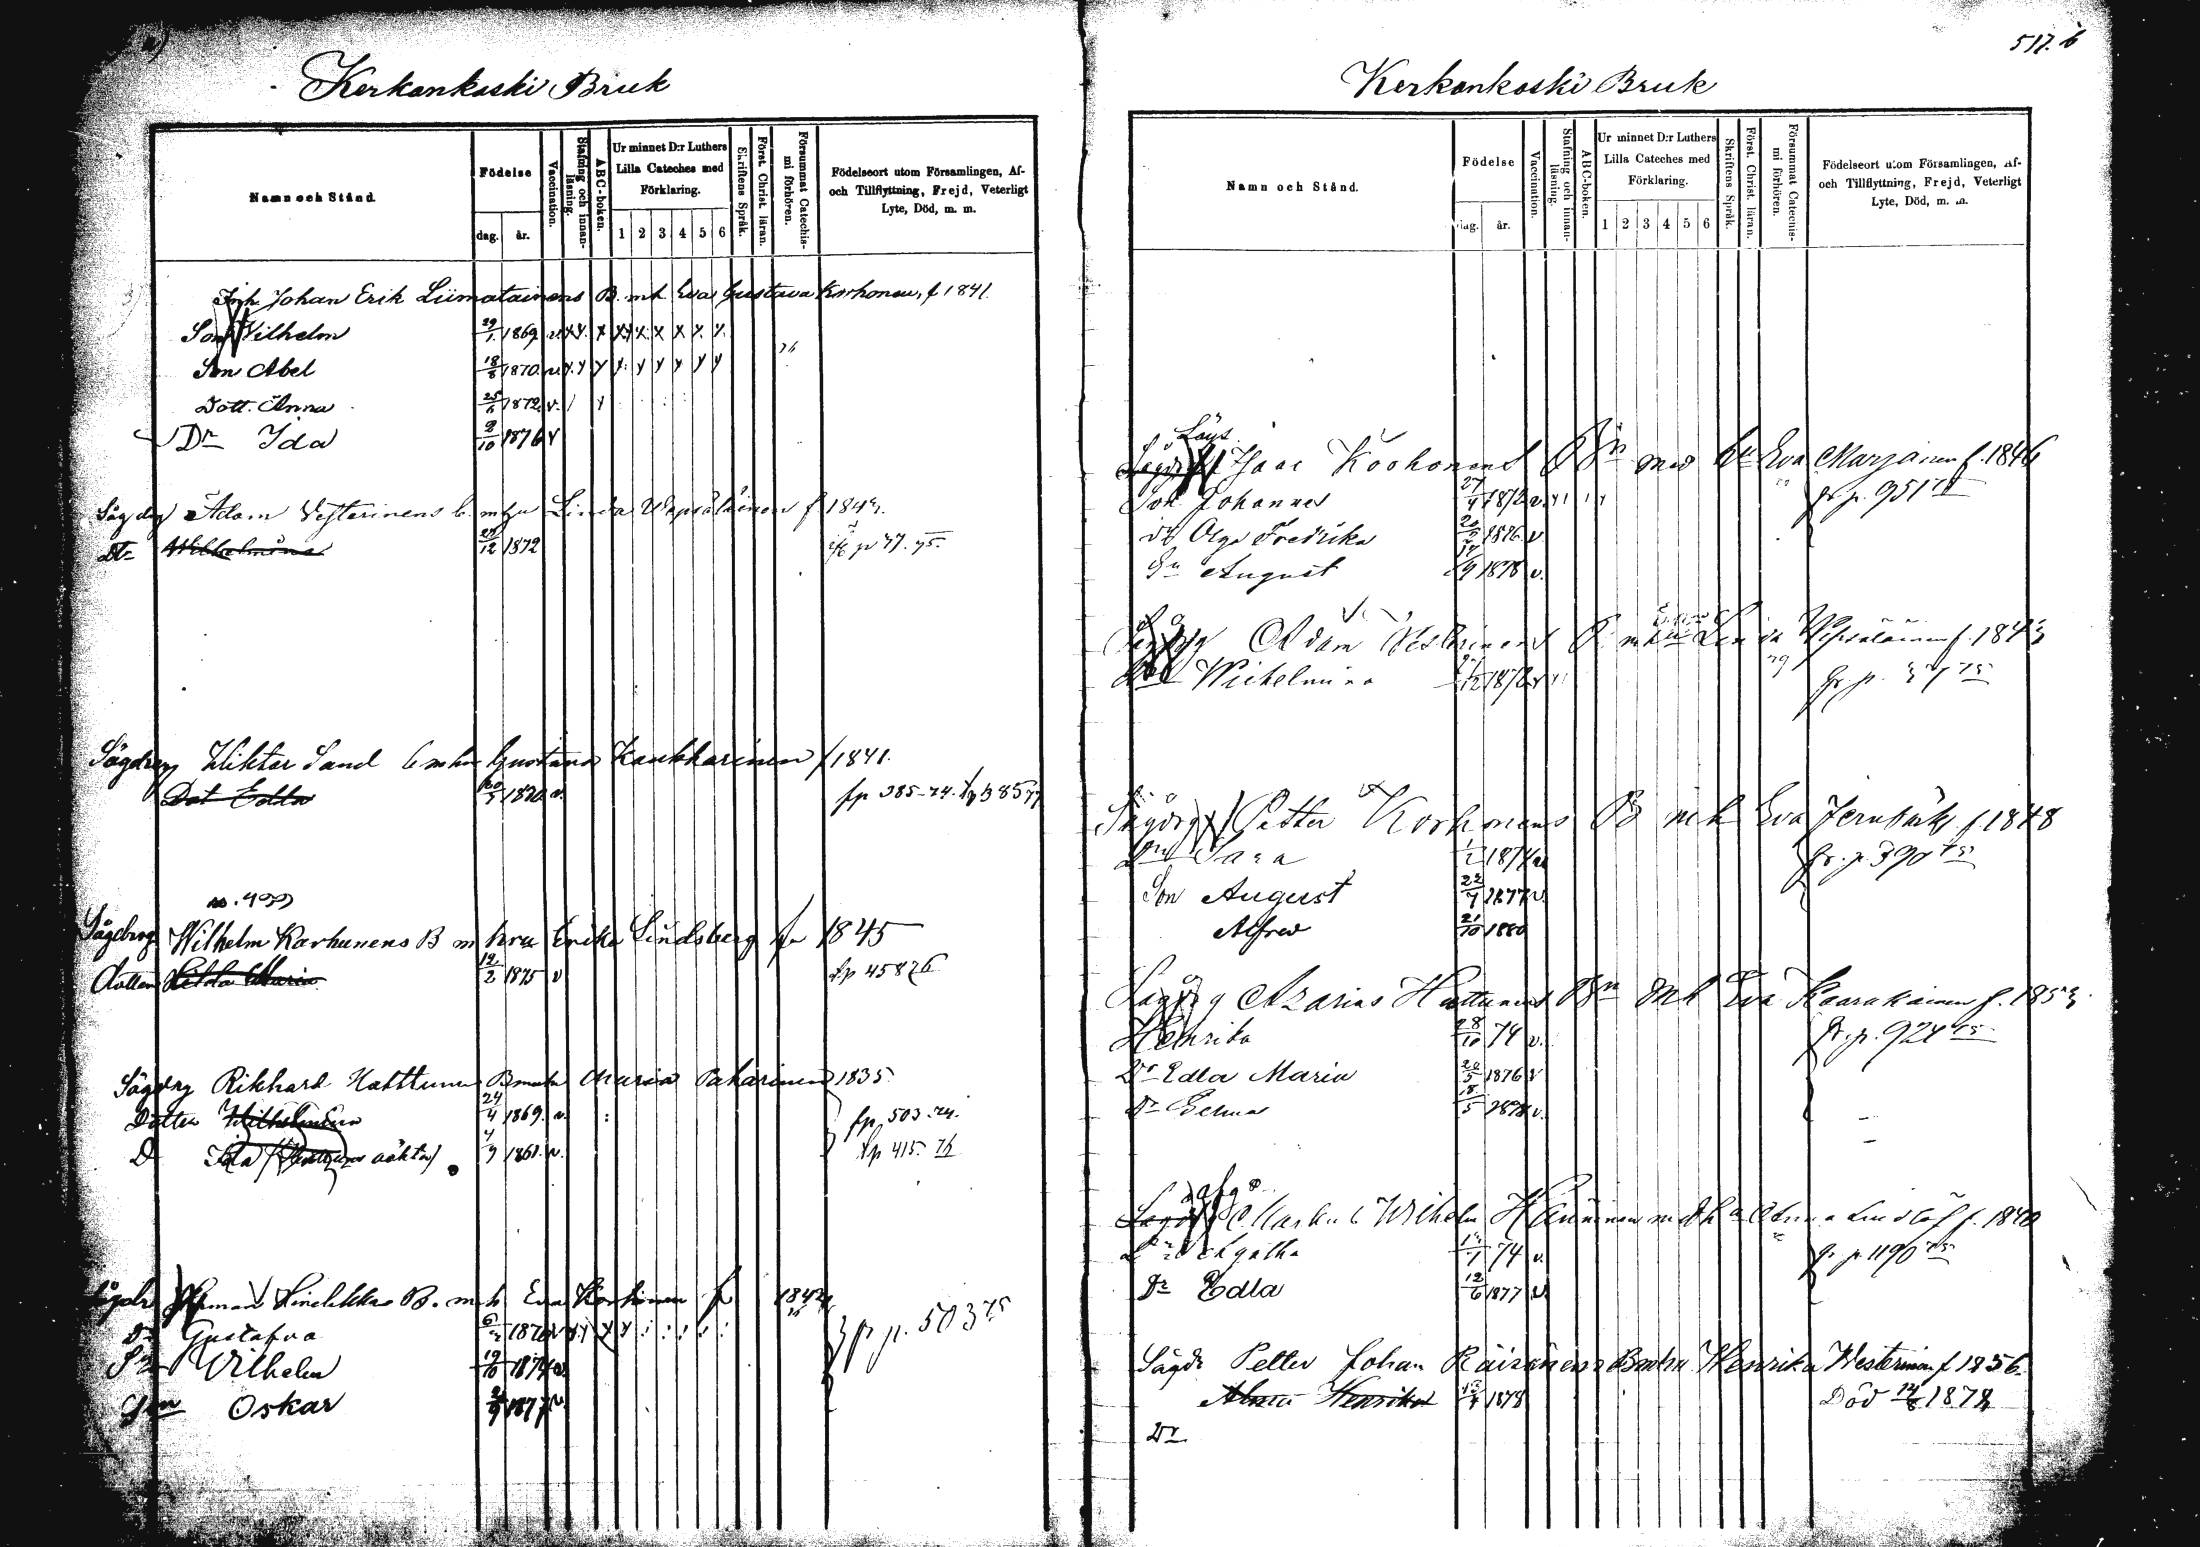 Kerkonkoski Bruk
Namn och Stånd.
Födelse
dag.
år.
Vaccination.
Stafning och innan-läsning.
ABC-boken.
Ur minnet D:r Luthers
Lilla Cateches med
Förklaring.
1 2 3 4 5 6
Skriftens Språk.
Först. Christ. läran.
Försummat Catechis-mi förhören.
Födelseort utom Församlingen, Af-
och Tillflyttning, Frejd, Veterligt
Lyte, Död, m. m.
Inh. Johan Erik Liimatainens B. mh Eva Gustava Korhonen, f 1841
Son Vilhelm 29/1 1869 v x x x x x x x x x
Son Abel 18/6 1870 v x y y y y y y y y
Dott. Anna 25/6 1872 v.
Dr Ida 2/10 1876 v
Sågdrg Adam Vesterinens b. mhu Linda Vepsäläinen f
Dtr Wilhelmina 12 1872 p 77. 75.
Sågdrg Wiktor Sand b mhu Gustava Kaukkarinen f 1841.
Dot Edla 1870 v. fp 385-74. fp 385 77
no. 499
Sågdrg Wilhelm Karhunens B m hru Erika Lindsberg f 1845
dotten Hilda Maria 12/2 1875 v fp 458 76
Sågdrg Rikhard Hatttunen B mhu Maria Pakarinen 1835
Dotter Wilhelmina 24/4 1869. v. fp 503-74.
D Ida oäkta) 4/9 1861. v. fp 415-76
Sågdr Herman Linelikkas B. mh Eva Korhonen f 1842
Dr Gustafva 1870 v y y y y
Sn Vilhelm 19/10 1874 v. fr p. 503 75
Son Oskar 1877 v.
517. b
Kerkonkoski Bruk
Namn och Stånd.
Födelse
dag.
år.
Vaccination.
Stafning och innan-läsning.
ABC-boken.
Ur minnet D:r Luthers
Lilla Cateches med
Förklaring.
1 2 3 4 5 6
Skriftens Språk.
Först. Christ. läran.
Försummat Catechis-mi förhören.
Födelseort utom Församlingen, Af-
och Tillflyttning, Frejd, Veterligt
Lyte, Död, m. m.
Löys.
Sågdrg Isaac Korhonens Bn med hu Eva Marjainen f. 1846
Son Johannes 27/4 1872 v. fr p. 951 75
dr Olga Fredrika 1876. v.
Sn August 9 1878 v.
Sågdrg Adam Vesterinens B mhu Linda Vepsäläinen f. 184
Dr Wilhelmina 12 1872 v fr p.
Sågdrg Petter Korhonens B mh Eva Jernbäck f 1848
Dr Sara 1874 v fr. p. 390 75
Son August 22/7 1877 v.
Alfred 21/10 1880
Sågdrg Azarias Huttunens Bn mh Eva Kaarakainen f. 185
Henrika 28/10 74 v. fr. p. 924 75
Dr Edla Maria 20/5 1876 v
Dr Selma 18/5 1878 v.
afg
Sågdrg Markus Wilhelm Häninen mdhu Anna Lindlöf f. 1840
Dr Agatha 74 v. fr p 1190 75
Dr Edla 12/6 1877 v.
Sågdr Petter Johan Räisänens B mhu Henrika Westerinen f 1856.
Alma Henrika 4 1878 Död 14/8 1878
Dr